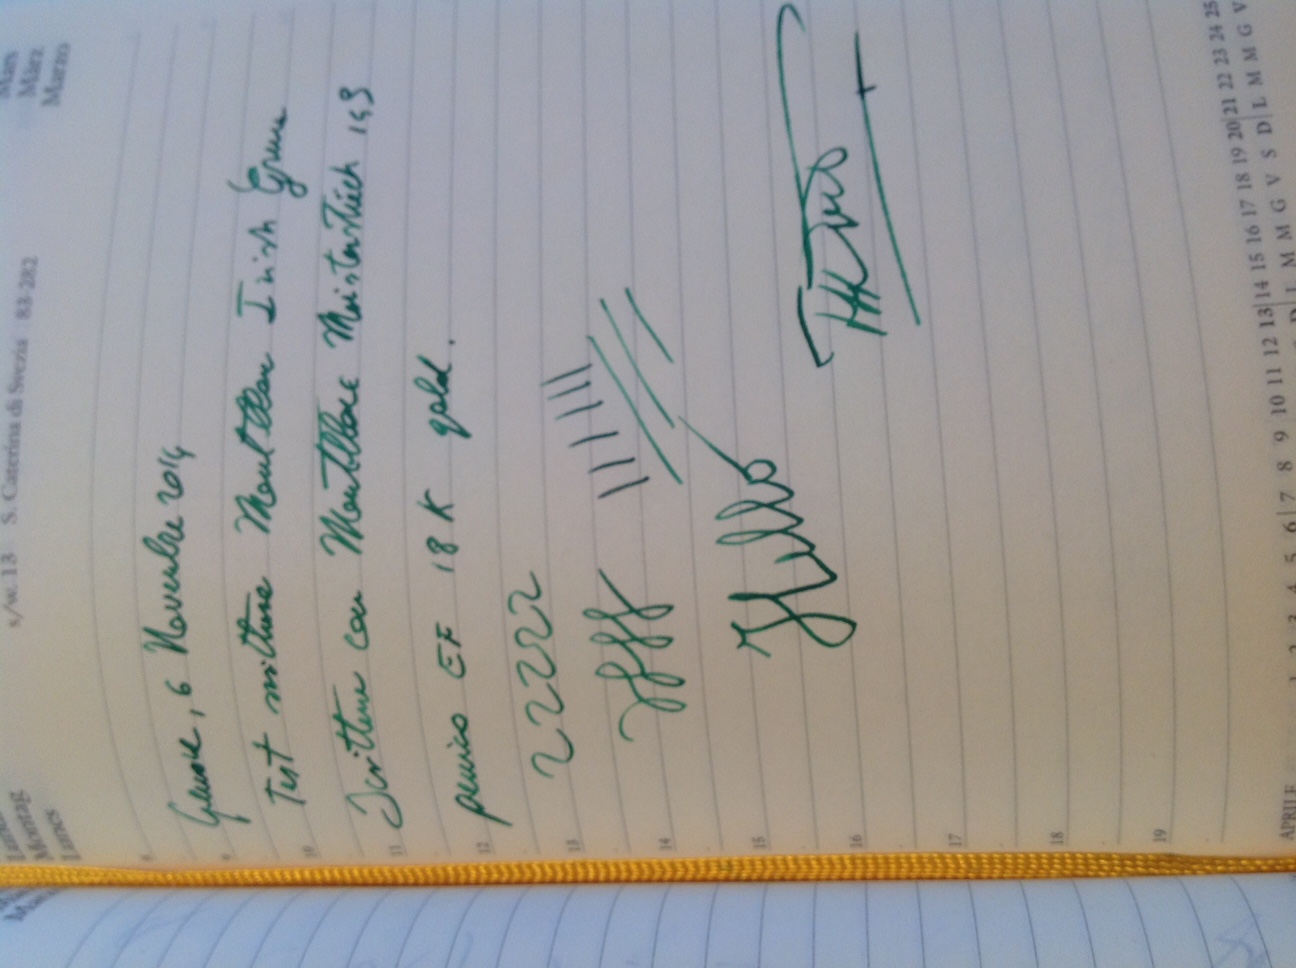 Mars
März
Marzo
S. Caterina di Svezia 83-282
Montag
Lunes
Genova, 6 Novembre 2014
Test scrittura Montblanc Irish Green
Scrittura con Montblanc Meisterstück 149
pennino EF 18 K gold.
22222
Hello
9
10
11
12
13
14
15
16
17
18
19
APRILE
1 2 3 4 5 6 7 8 9 10 11 12 13 14 15 16 17 18 19 20 21 22 23 24 25
D L M M G V S D L M M G V